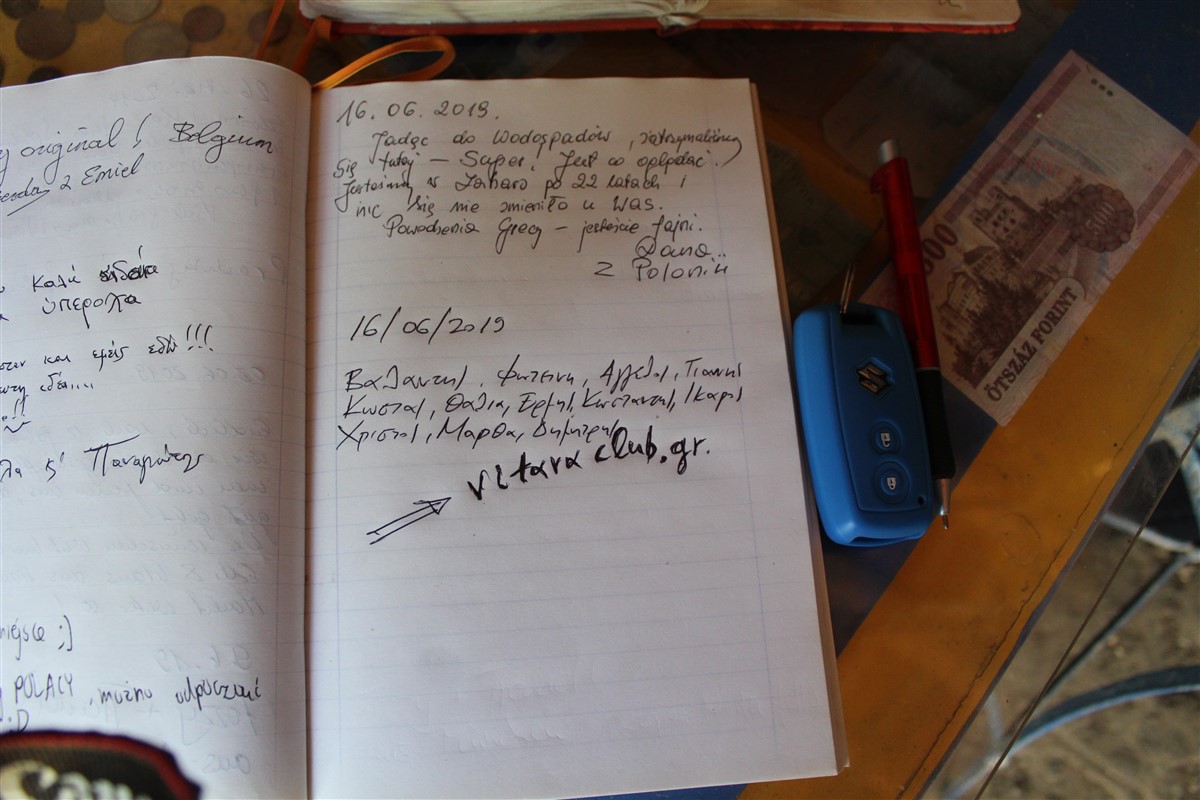 original! Belgium
2 Emiel
καλή
υπέροχα
και εμείς εδώ!!!
Παναγιώτης
miejsce ;)
POLACY, można odpocząć
:D
16.06.2019.
Jadąc do Wodospadów, zatrzymaliśmy
się tutaj — Super! Jest co oglądać.
Jesteśmy w Zaharo po 22 latach i
nic się nie zmieniło u WAS.
Powodzenia Grecy — jesteście fajni.
Dana
z Polonii
16/06/2019
Βαλαντης, Φωτεινη, Αγγελος, Γιαννης
Κωστας, Θαλια, Ερμης, Κωσταντης, Ικαρος
Χριστος, Μαρθα, Δημητρης
vitara club.gr.
500
ÖTSZÁZ FORINT